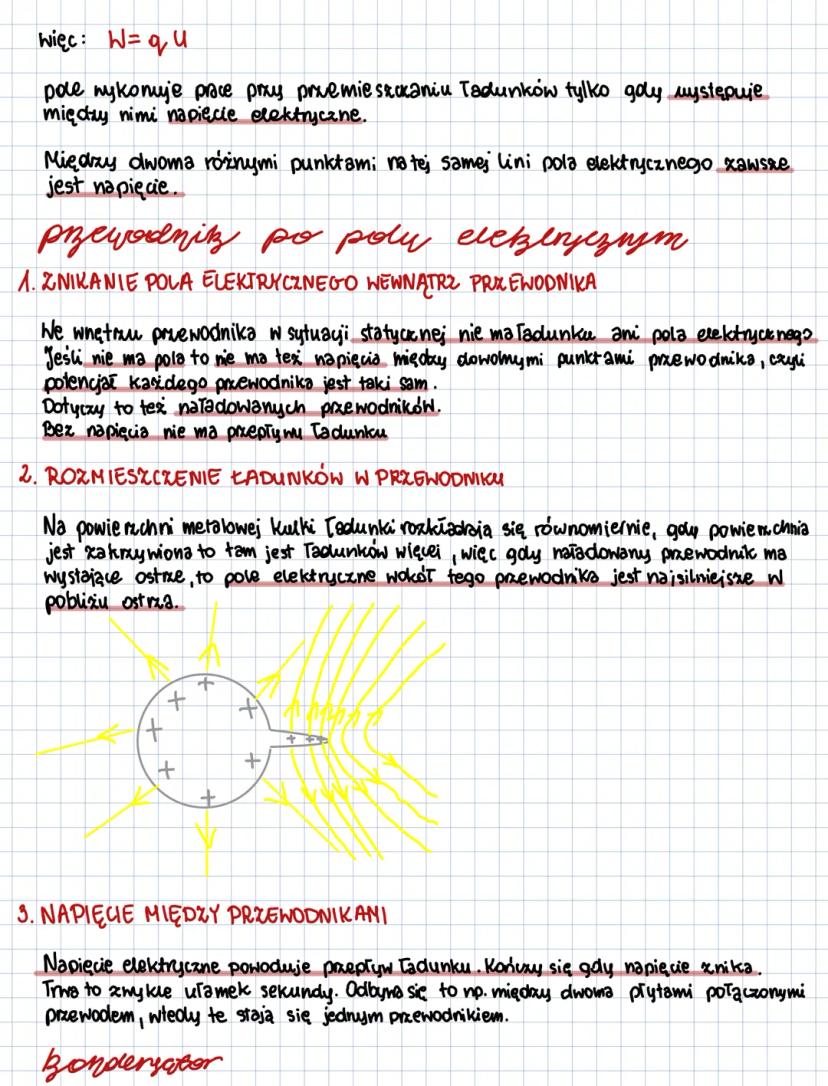 więc: W= q U
pole wykonuje prace przy przemieszczaniu ładunków tylko gdy występuje
między nimi napięcie elektryczne.
Między dwoma różnymi punktami na tej samej lini pola elektrycznego zawsze
jest napięcie.
przewodnik po polu elektrycznym
1. ZNIKANIE POLA ELEKTRYCZNEGO WEWNĄTRZ PRZEWODNIKA
We wnętrzu przewodnika w sytuacji statycznej nie ma ładunku ani pola elektrycznego
Jeśli nie ma pola to nie ma też napięcia między dowolnymi punktami przewodnika, czyli
potencjał każdego przewodnika jest taki sam.
Dotyczy to też naładowanych przewodników.
Bez napięcia nie ma przepływu ładunku
2. ROZMIESZCZENIE ŁADUNKÓW W PRZEWODNIKU
Na powierzchni metalowej kulki ładunki rozkładają się równomiernie, gdy powierzchnia
jest zakrzywiona to tam jest ładunków więcej, więc gdy naładowany przewodnik ma
wystające ostrze, to pole elektryczne wokół tego przewodnika jest najsilniejsze w
pobliżu ostrza.
+ + + + + + + + + + +
3. NAPIĘCIE MIĘDZY PRZEWODNIKAMI
Napięcie elektryczne powoduje przepływ ładunku. Kończy się gdy napięcie znika.
Trwa to zwykle ułamek sekundy. Odbywa się to np. między dwoma płytami połączonymi
przewodem, wtedy te stają się jednym przewodnikiem.
kondensator